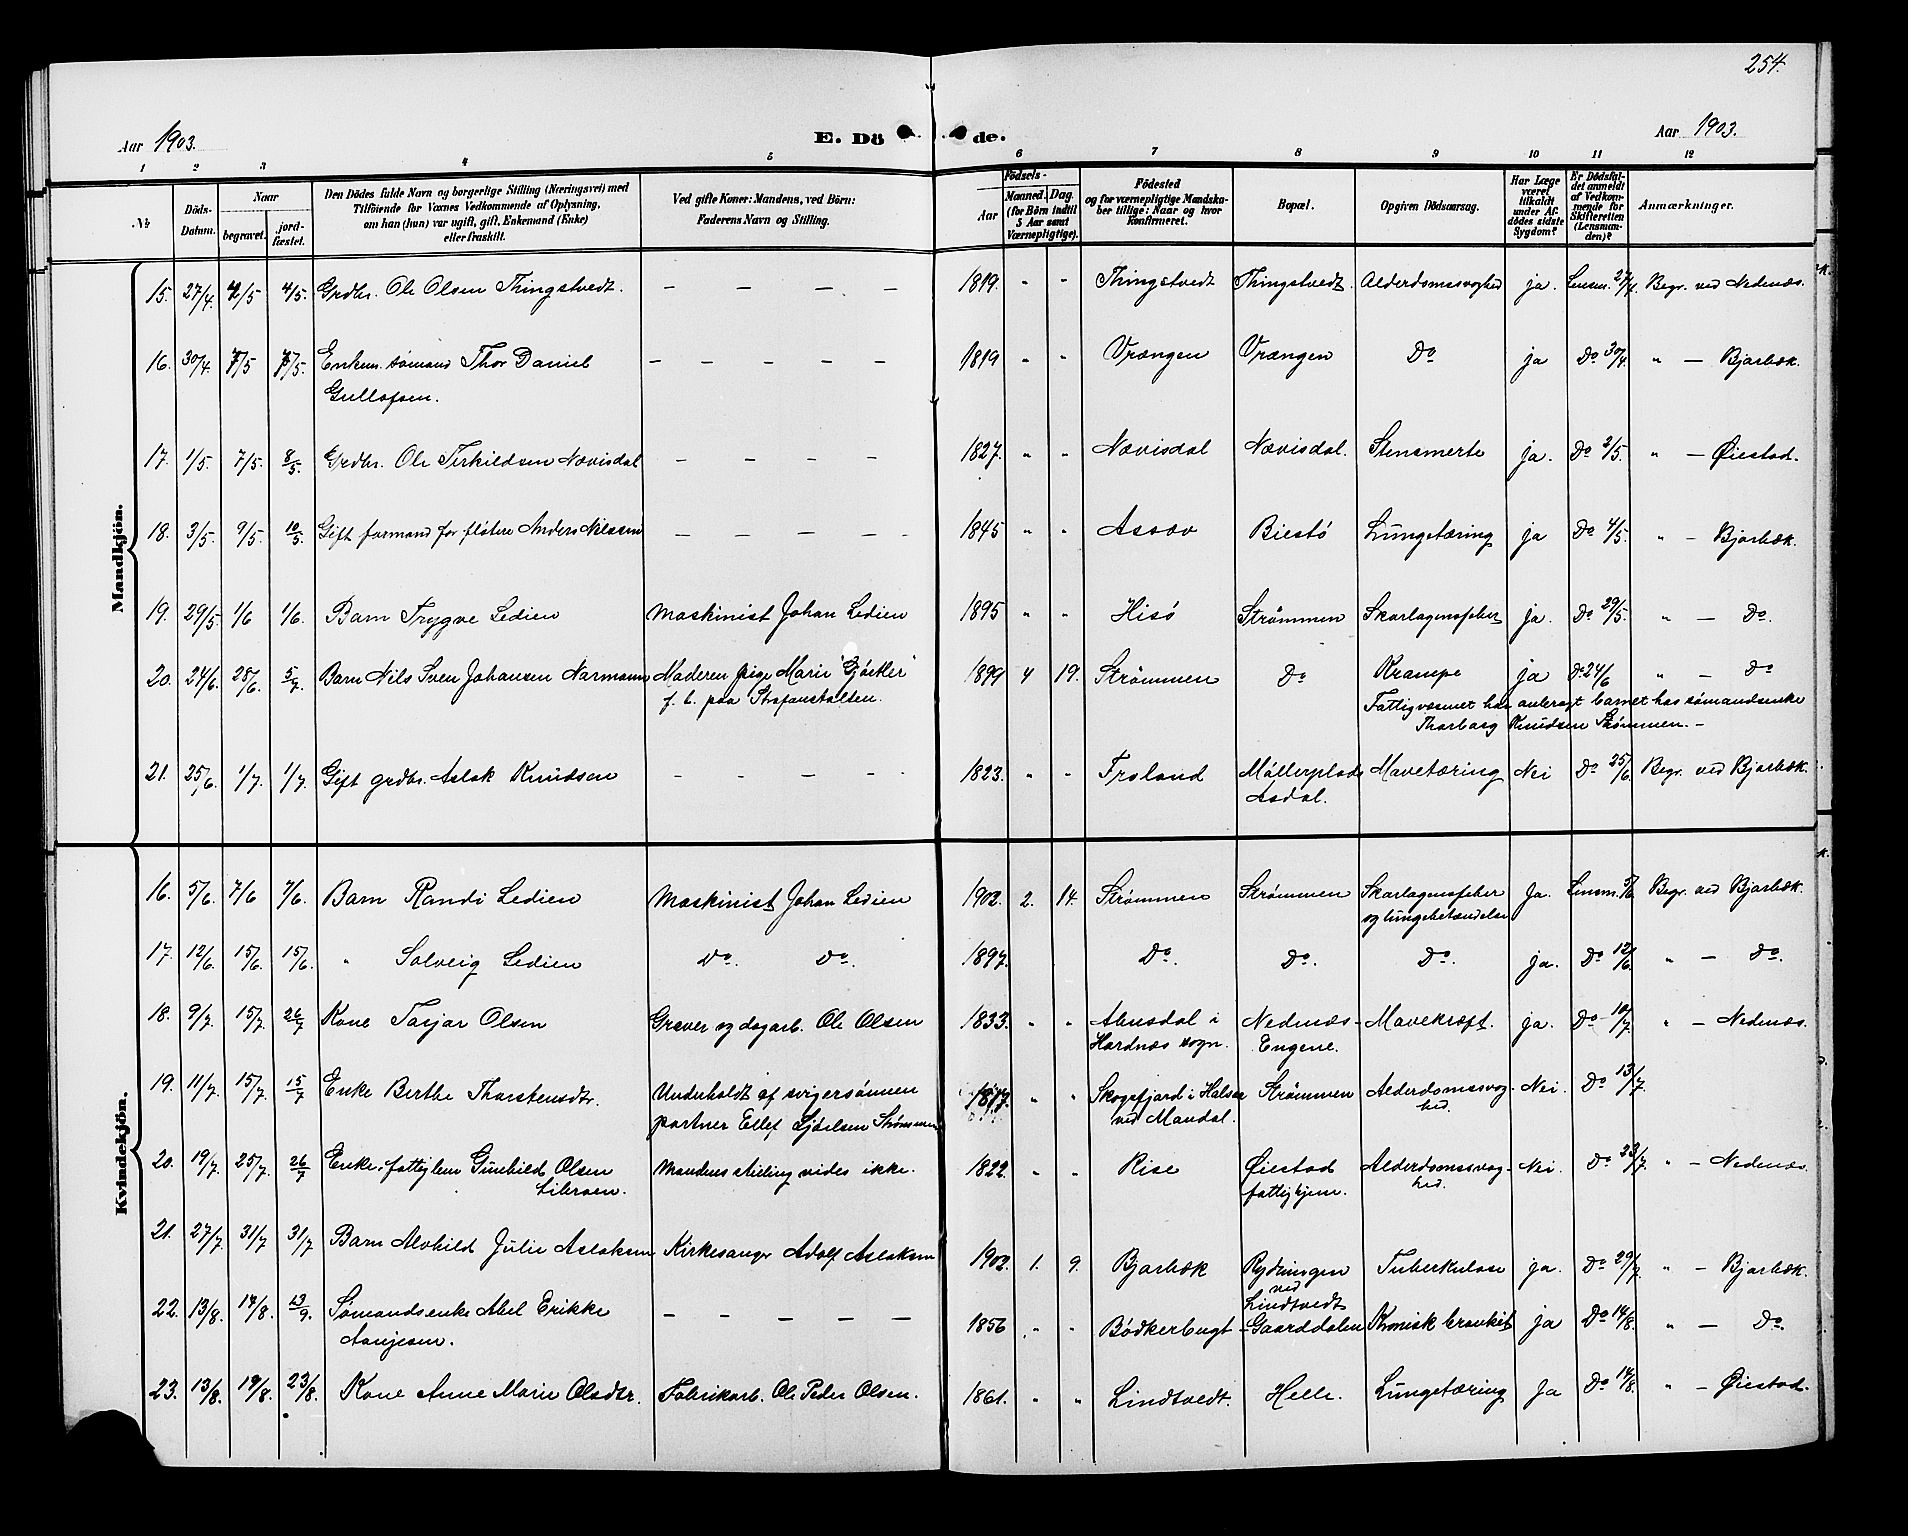 254.
Aar 1903. E. Dö de. Aar 1903.
1 2 3 4 5 6 7 8 9 10 11 12
№ Döds-Datum. Naar begravet. jord-fæstet. Den Dödes fulde Navn og borgerlige Stilling (Næringsvei) med Tilföiende for Voxnes Vedkommende af Oplysning, om han (hun) var ugift, gift, Enkemand (Enke) eller fraskilt. Ved gifte Koner: Mandens, ved Börn: Faderens Navn og Stilling. Födsels- Aar Maaned. Dag. (for Börn indtil 5 Aar samt Værnepligtige). Födested og for værnepligtige Mandskaber tillige: Naar og hvor konfirmeret. Bopæl. Opgiven Dödsaarsag. Har Læge været tilkaldt under Afdödes sidste Sygdom? Er Dödsfaldet anmeldt af Vedkommende for Skifteretten (Lensmanden)? Anmærkninger.
Mandkjön.
15. 27/4. 4/5 4/5. Grdbr. Ole Olsen Thingstvedt. — — — — 1819. " " Thingstvedt Thingstvedt. Alderdomssvaghed ja. Lensm. 27/4. Begr. ved Nedenæs.
16. 30/4. 7/5 7/5. Enkem. sømand Thor Daniel — — — — 1819 " " Vrængen Vrængen Do ja Do 30/4 " — Bjorbæk.
Gullofsen.
17. 1/5. 7/5. 8/5. Grdbr. Ole Terkildsen Nævisdal — — — — 1827. " " Nævisdal Nævisdal. Stensmerte ja. Do 2/5. " — Øiestad.
18. 3/5. 9/5. 10/5. Gift formand for fløtere Anders Nilssen — — — — 1845 " " Assæv Biestø Lungetæring ja Do 4/5. " — Bjorbæk.
19. 29/5. 1/6 1/6. Barn Trygve Ledien Maskinist Johan Ledien 1895 " " Hisø Strømmen Skarlagensfeber ja. Do 29/5. " — Do.
20. 24/6. 28/6. 5/7. Barn Nils Sven Johansen Narmann Moderen pige Marie "Gjøtler" 1899 4 19. Strømmen Do Krampe ja Do 24/6 " — Do
f. t. paa Strafanstalten. Fattigvæsenet har anbragt barnet hos sømandsenke
Thorborg Knudsen Strømmen. —
21. 25/6. 1/7. 1/7. Gift grdbr. Aslak Knudsen — — — — 1823. " " Froland Møllerplads Mavetæring Nei Do 25/6. Begr. ved Bjorbæk.
Asdal.
Kvindekjön.
16. 5/6. 7/6 7/6. Barn Randi Ledien Maskinist Johan Ledien 1902. 2. 14. Strømmen Strømmen Skarlagensfeber Ja. Lensm. 5/6. Begr. ved Bjorbæk.
og lungebetændelse
17. 12/6. 15/6. 15/6. " Solveig Ledien Do. Do. 1897. Do. Do. Do. ja. Do 12/6. " — Do.
18. 9/7. 15/7. 26/7 Kone Tarjær Olsen Graver og dagarb. Ole Olsen 1833. " " Abusdal i Nedenæs- Mavekræft. ja. Do 10/7. " — Nedenæs.
Hordnæs sogn. Engene.
19. 11/7. 15/7. 15/7 Enke Berthe Thorstensdtr. Underholdt af svigersønnen 1817. " " Skogsfjord i Halsaa Strømmen Alderdomssvag- Nei. Do 13/7.
partner Ellef Sjøilsen Strømmen ved Mandal. hed.
20. 19/7. 25/7. 26/7 Enke, fattiglem Gunhild Olsen Mandens stilling vides ikke. 1822. " " Rise Øiestad Alderdomssvag- Nei. Do 23/7. " — Nedenæs
Liberoen. fattighjem. hed.
21. 27/7. 31/7 31/7 Barn Alvhild Julie Aslaksen Kirkesanger Adolf Aslaksen 1902. 1. 9. Bjorbæk Rydningen Tuberkulose ja. Do 29/7. " — Bjorbæk.
ved
Lindtvedt
22. 13/8. 17/8. 13/9. Sømandsenke Abel Erikke — — — — 1856 " " Bödkerbugt -Gaarddalen Kronisk bronkit ja Do 14/8. " — Do.
Aanjesen.
23. 13/8. 19/8. 23/8. Kone Anne Marie Olsdtr. Fabrikarb. Ole Peder Olsen. 1861. " " Lindtvedt. Helle. Lungetæring Ja Do 14/8. " — Øiestad.